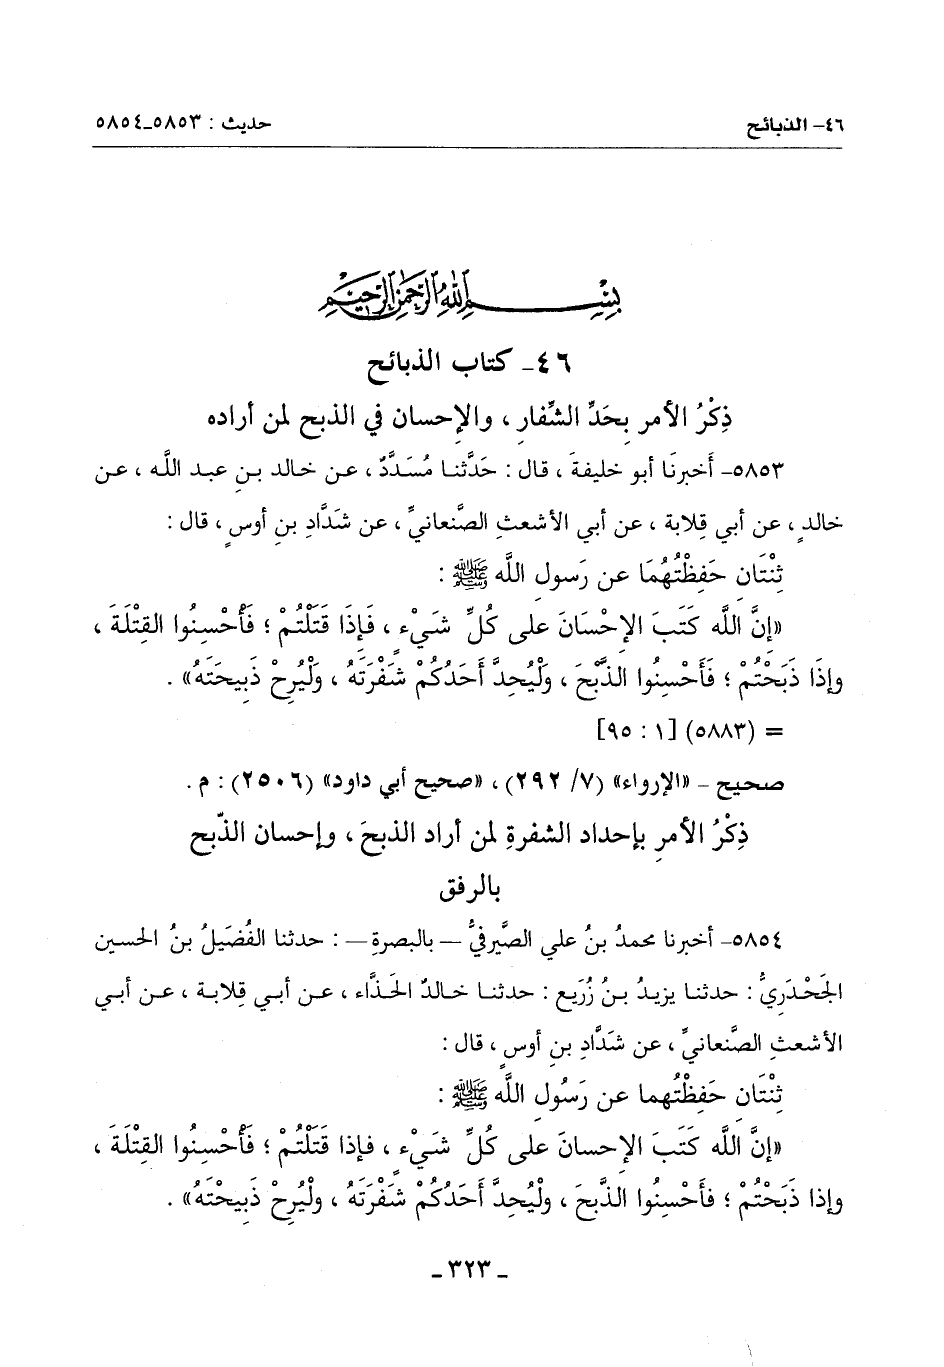 ٤٦- الذبائح
حديث : ٥٨٥٣-٥٨٥٤
بِسْمِ اللهِ الرَّحْمٰنِ الرَّحِيْمِ
٤٦- كتاب الذبائح
ذِكْرُ الأمر بِحَدِّ الشِّفارِ ، والإحسان في الذبح لمن أراده
٥٨٥٣- أَخبرنَا أبو خليفةَ ، قال : حَدَّثنا مُسَدَّدٌ ، عن خالد بنِ عبد الله ، عن
خالدٍ ، عن أبي قِلابة ، عن أبي الأشعثِ الصَّنعانيِّ ، عن شَدَّادِ بنِ أوسٍ ، قال :
ثِنْتَانِ حَفِظْتُهُمَا عن رَسولِ اللَّه ﷺ :
«إنَّ اللَّه كَتَبَ الإحْسَانَ على كُلِّ شَيْءٍ ، فَإِذَا قَتَلْتُمْ ؛ فَأَحْسِنُوا القِتْلَةَ ،
وإِذَا ذَبَحْتُمْ ؛ فَأَحْسِنُوا الذَّبْحَ ، وَلْيُحِدَّ أَحَدُكُمْ شَفْرَتَهُ ، وَلْيُرِحْ ذَبِيحَتَهُ» .
= (٥٨٨٣) [١ : ٩٥]
صحيح - «الإرواء» (٧/ ٢٩٢) ، «صحيح أبي داود» (٢٥٠٦) : م .
ذِكْرُ الأمرِ بإحداد الشفرةِ لمن أراد الذبحَ ، وإحسان الذَّبح
بالرفق
٥٨٥٤- أخبرنا محمدُ بنُ علي الصَّيرفيُّ — بالبصرةِ — : حدثنا الفُضَيلُ بنُ الحسين
الجَحْدَرِيُّ : حدثنا يزيدُ بنُ زُرَيع : حدثنا خالدٌ الحَذَّاء ، عن أبي قِلابة ، عن أبي
الأشعثِ الصَّنعانيِّ ، عن شَدَّادِ بنِ أوسٍ ، قال :
ثِنْتَانِ حَفِظْتُهما عن رَسُولِ اللَّه ﷺ :
«إنَّ اللَّه كَتَبَ الإحسانَ على كُلِّ شَيْءٍ ، فإذا قَتَلْتُمْ ؛ فَأَحْسِنُوا القِتْلَةَ ،
وإذا ذَبَحْتُمْ ؛ فأَحْسِنُوا الذَّبحَ ، ولْيُحِدَّ أَحَدُكُمْ شَفْرَتَهُ ، ولْيُرِحْ ذَبِيحْتَهُ» .
- ٣٢٣ -